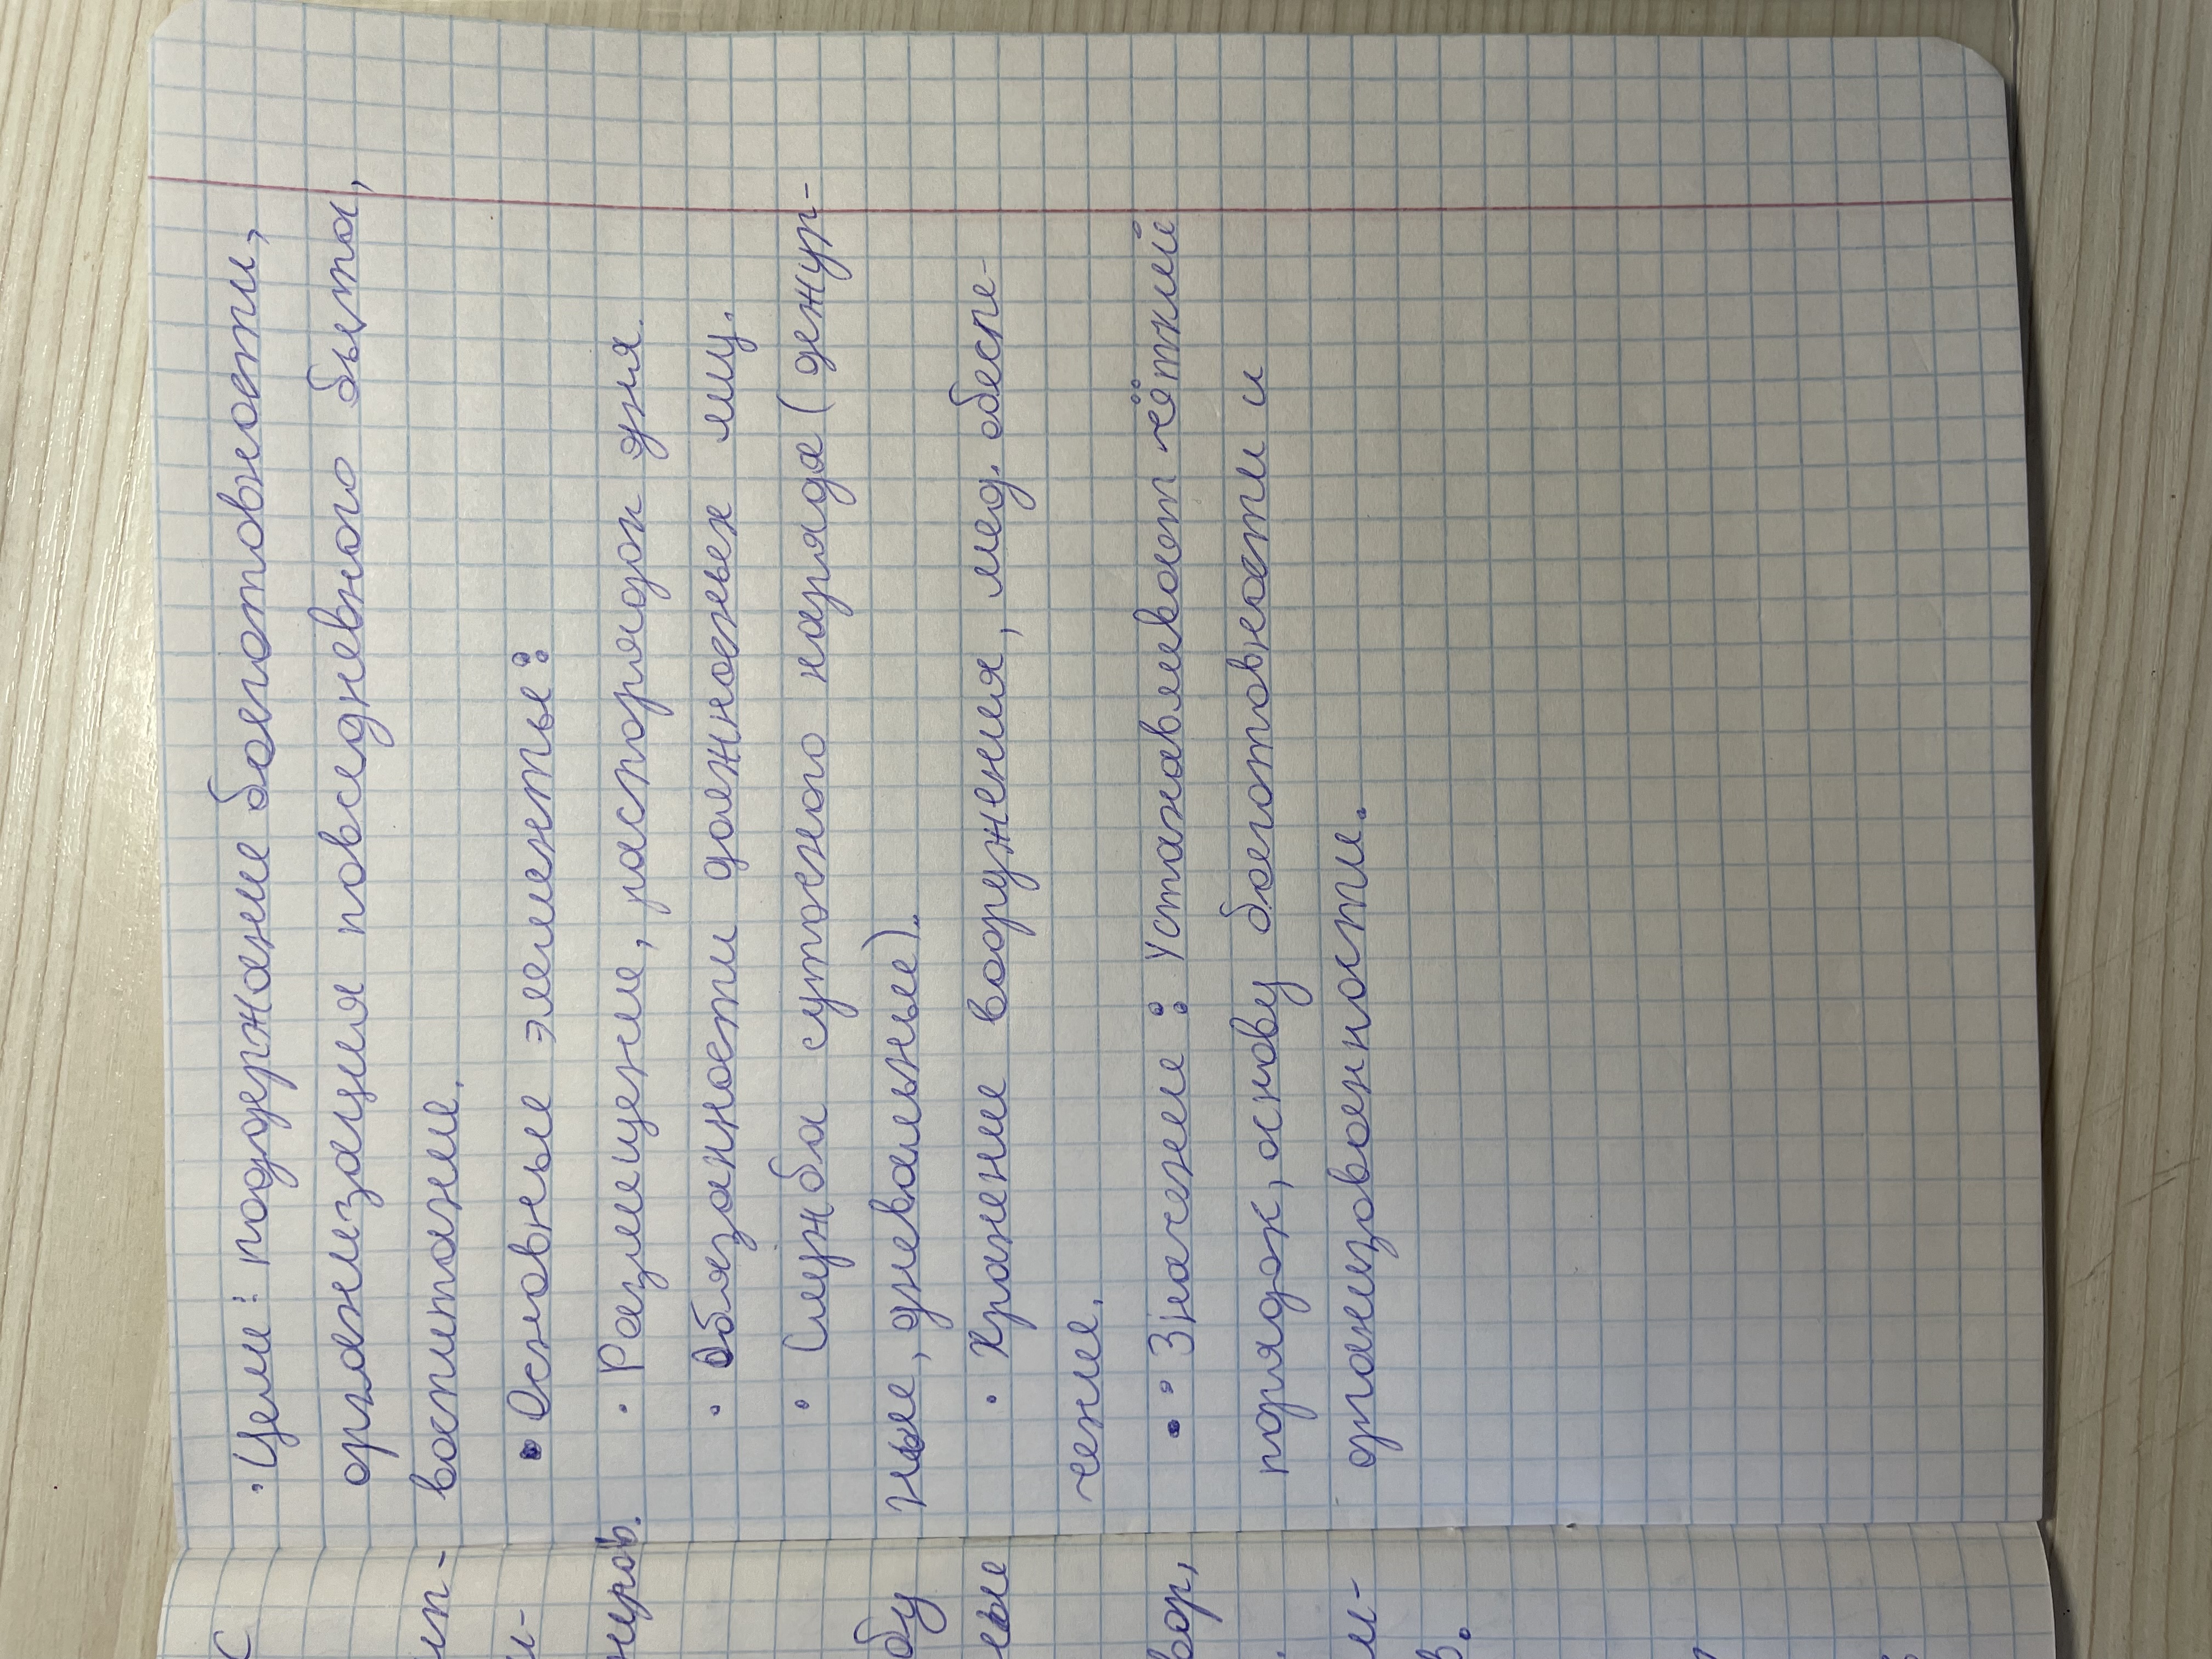 · Цели: поддержание боеготовности,
организация повседневного быта,
воспитание.
• Основные элементы:
· Размещение, распорядок дня.
· Обязанности должностных лиц.
· Служба суточного наряда (дежур-
ные, дневальные).
· Хранение вооружения, мед. обеспе-
чение.
• · Значение: Устанавливают чёткий
порядок, основу боеготовности и
организованности.